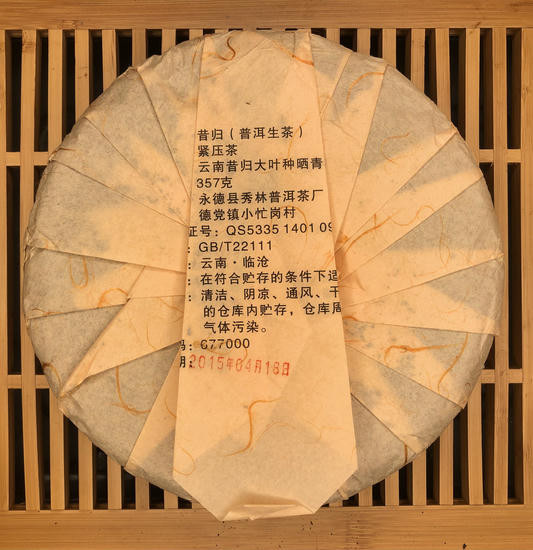 昔归（普洱生茶）
紧压茶
云南昔归大叶种晒青
357克
永德县秀林普洱茶厂
德党镇小忙岗村
证号：QS5335 1401 09
：GB/T22111
：云南·临沧
：在符合贮存的条件下适
：清洁、阴凉、通风、干
的仓库内贮存，仓库周
气体污染。
码：677000
期：2015年04月18日